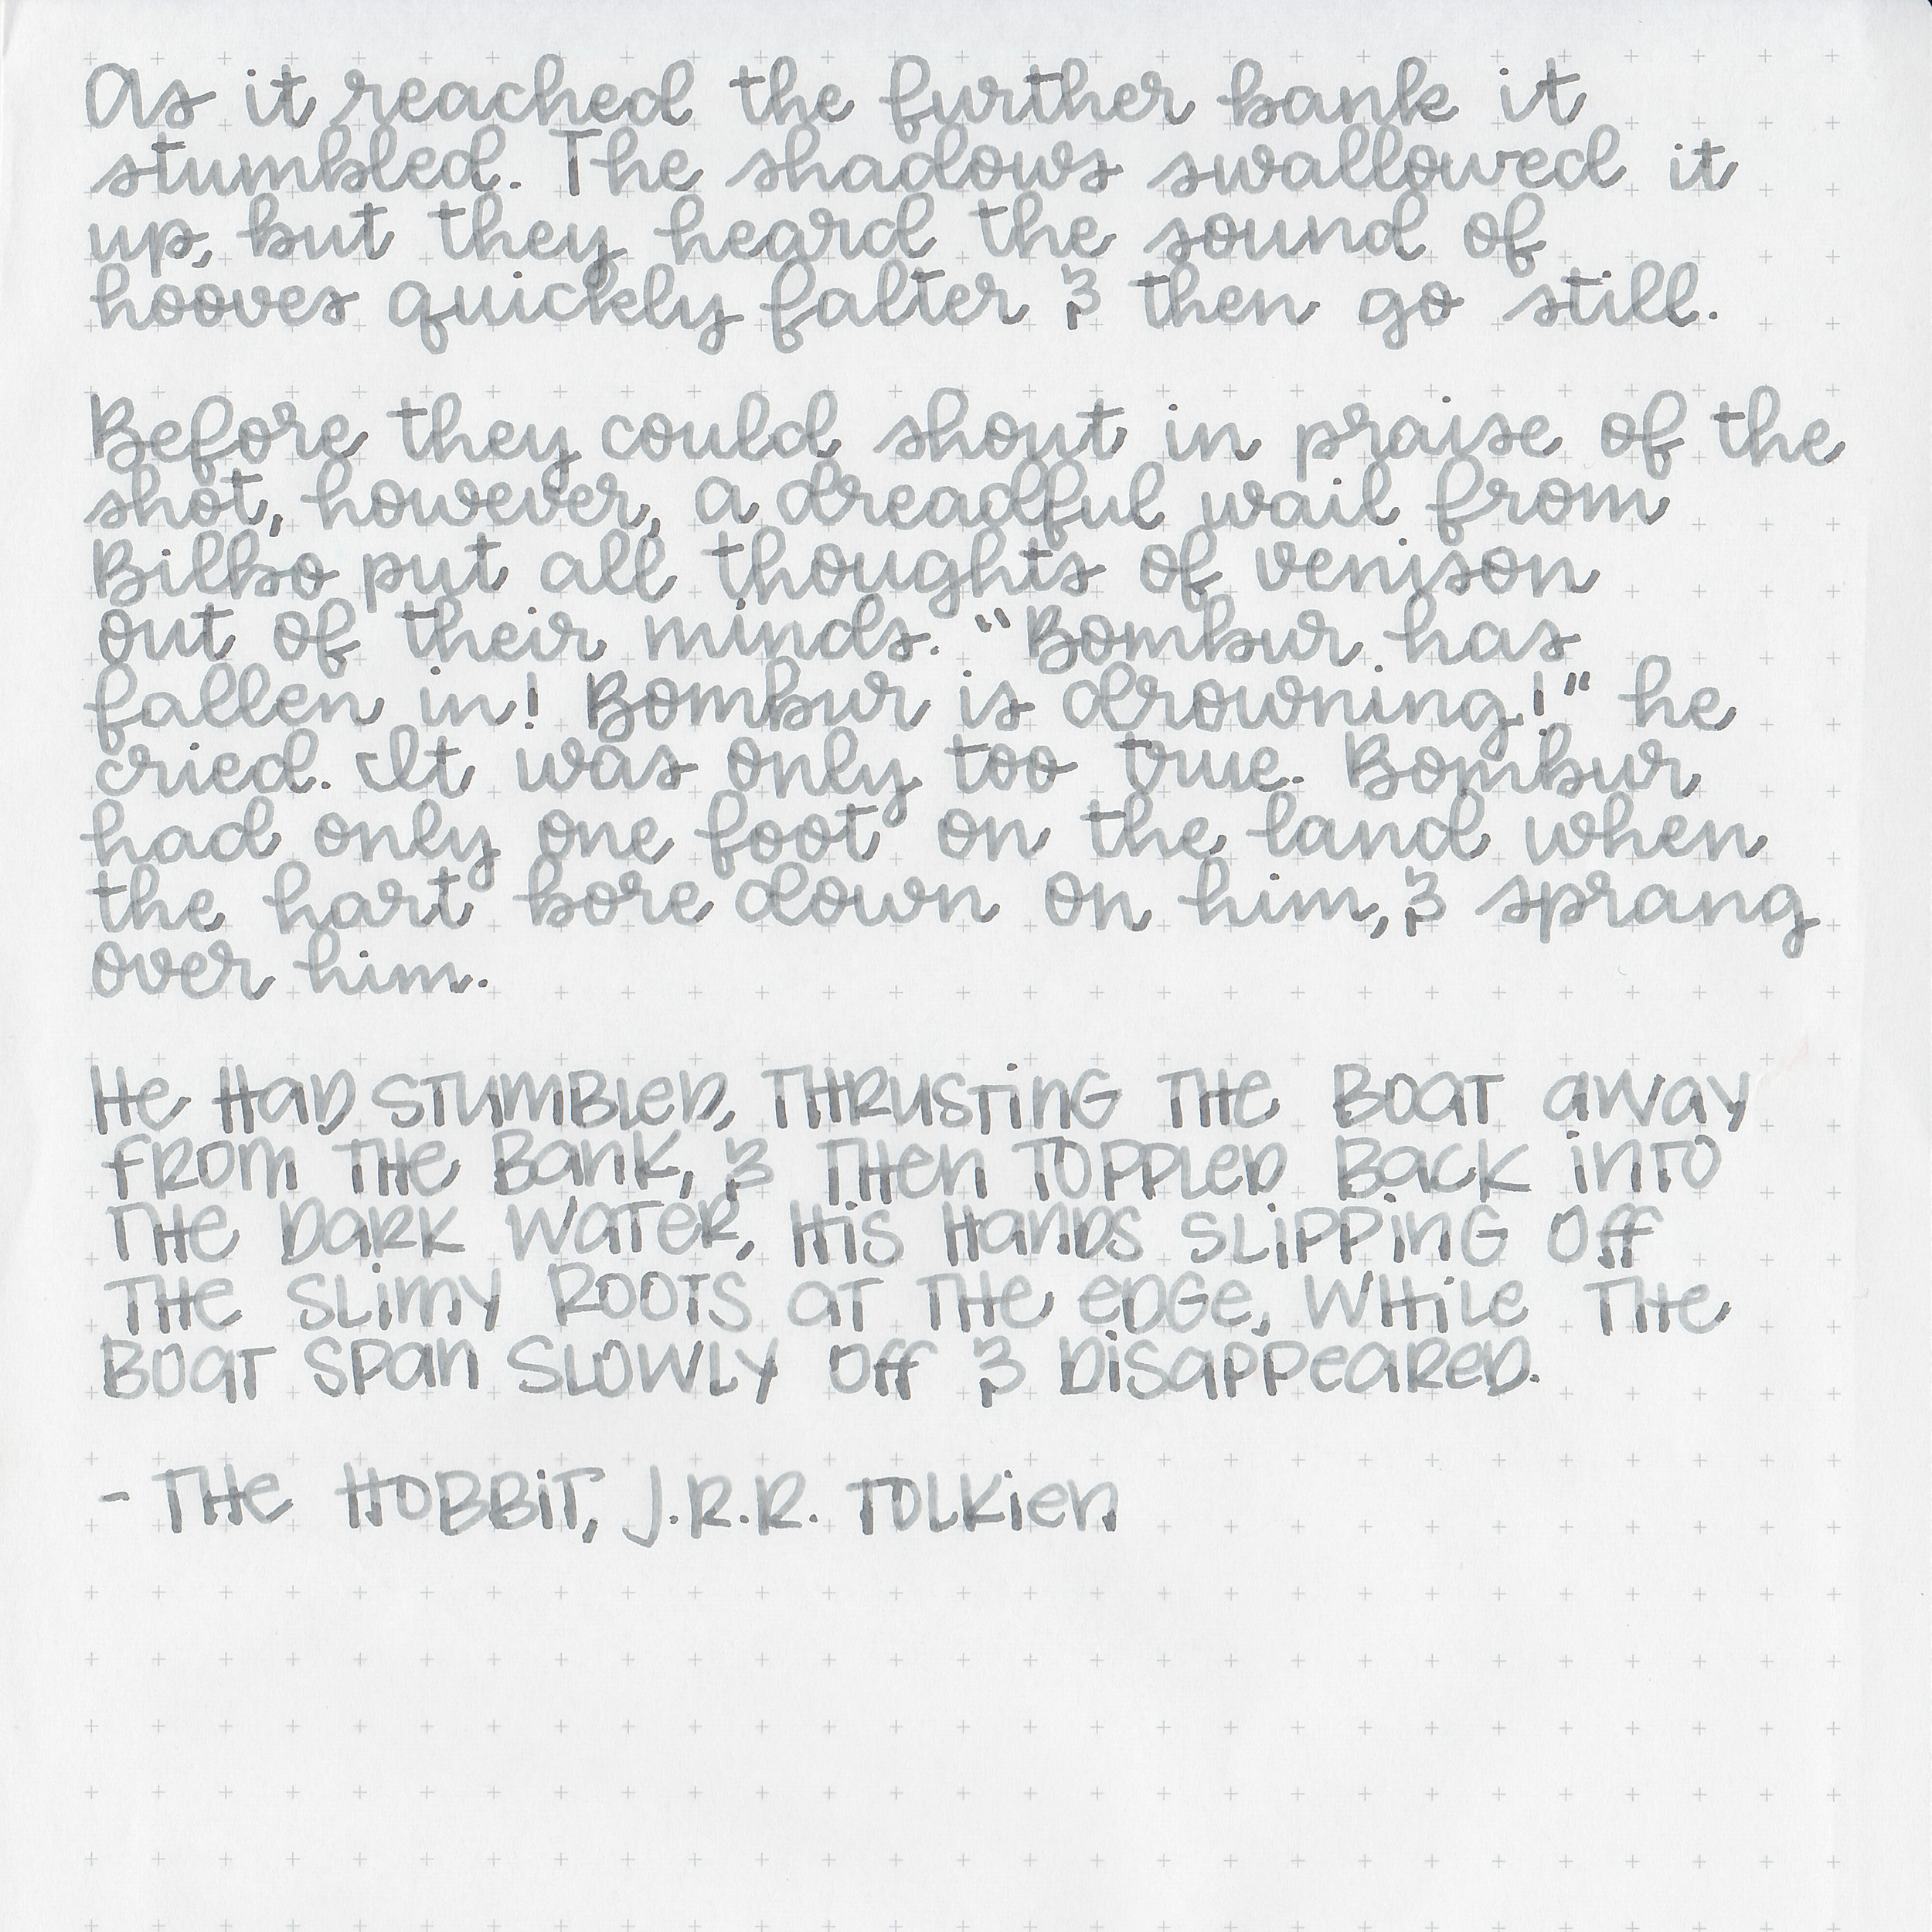 As it reached the further bank it
stumbled. The shadows swallowed it
up, but they heard the sound of
hooves quickly falter & then go still.
Before they could shout in praise of the
shot, however, a dreadful wail from
Bilbo put all thoughts of venison
out of their minds. "Bombur has
fallen in! Bombur is drowning!" he
cried. It was only too true. Bombur
had only one foot on the land when
the hart bore down on him, & sprang
over him.
He Had STumBleD, THRUSTinG THe BoaT away
from THe Bank, & THen Toppled Back inTo
THe Dark WaTer, His Hands Slipping Off
THe Slimy RooTs aT THe eDGe, WHile THe
BoaT Span Slowly Off & Disappeared.
- THe HoBBiT, J.R.R. Tolkien